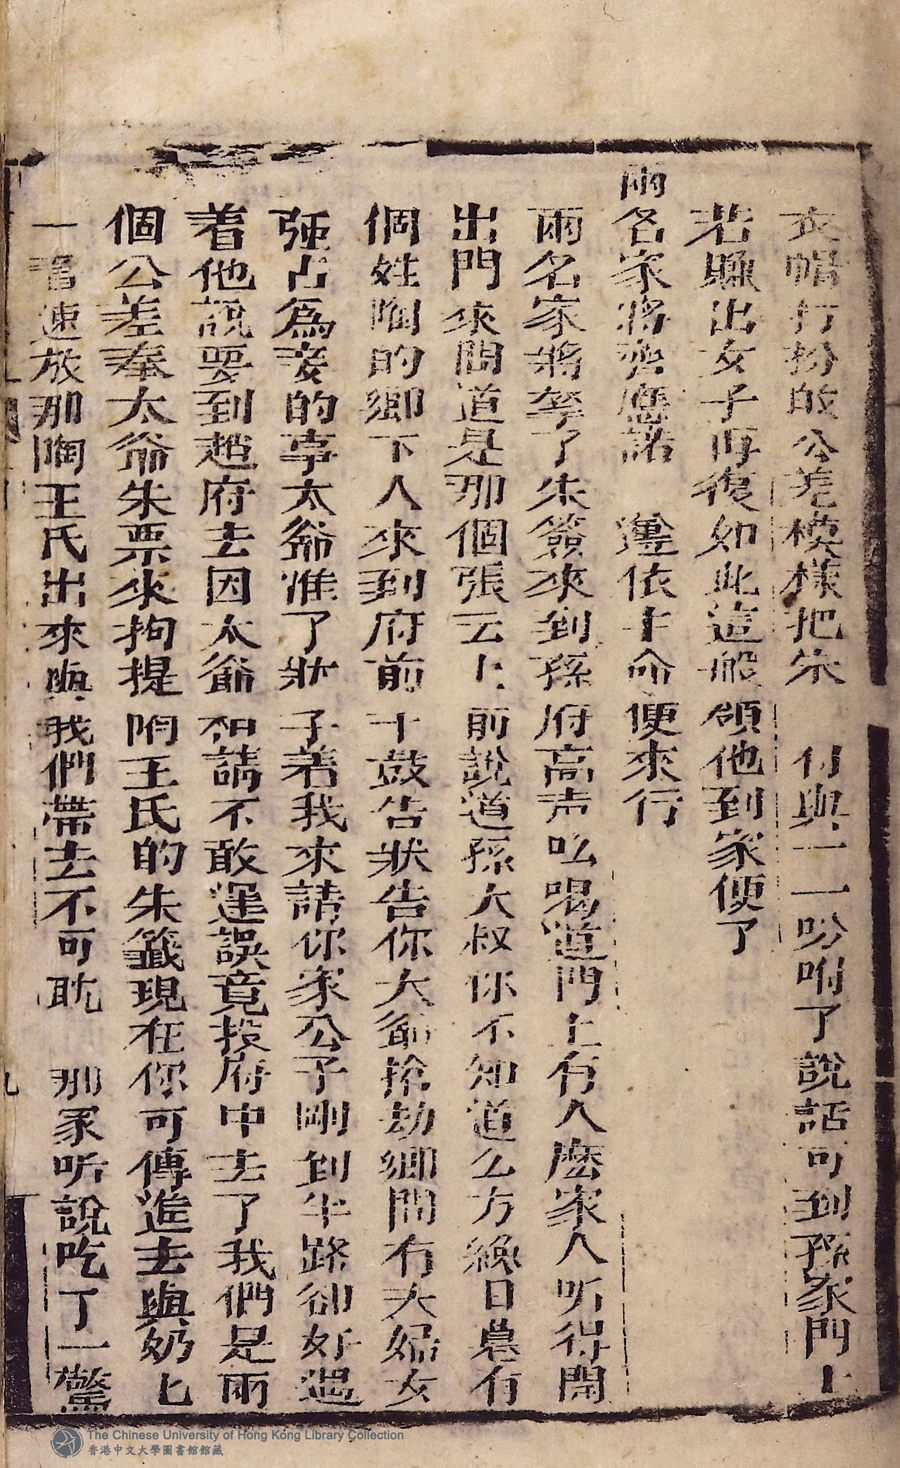 衣帽打扮的公差模樣把朱　付與二一吩咐了說話可到孫家門上
若賺出女子再復如此這般領他到家便了
兩各家將齊應諾　遵依主命便來行
兩名家將拏了朱簽來到孫府高声吆喝道門上有人麽家人听得開
出門來問道是那個張云上前說道孫大叔你不知道么方纔日暮有
個姓陶的鄉下人來到府前　鼓告狀告你大爺搶劫鄉間有夫婦女
强占爲妾的事太爺准了狀子着我來請你家公子剛到半路卻好遇
着他說要到趙府去因太爺相請不敢遲誤竟投府中去了我們是兩
個公差奉太爺朱票來拘提陶王氏的朱籖現在你可傳進去與奶匕
一　速放那陶王氏出來與我們帶去不可耽　那家听說吃了一驚
九
The Chinese University of Hong Kong Library Collection
香港中文大學圖書館館藏